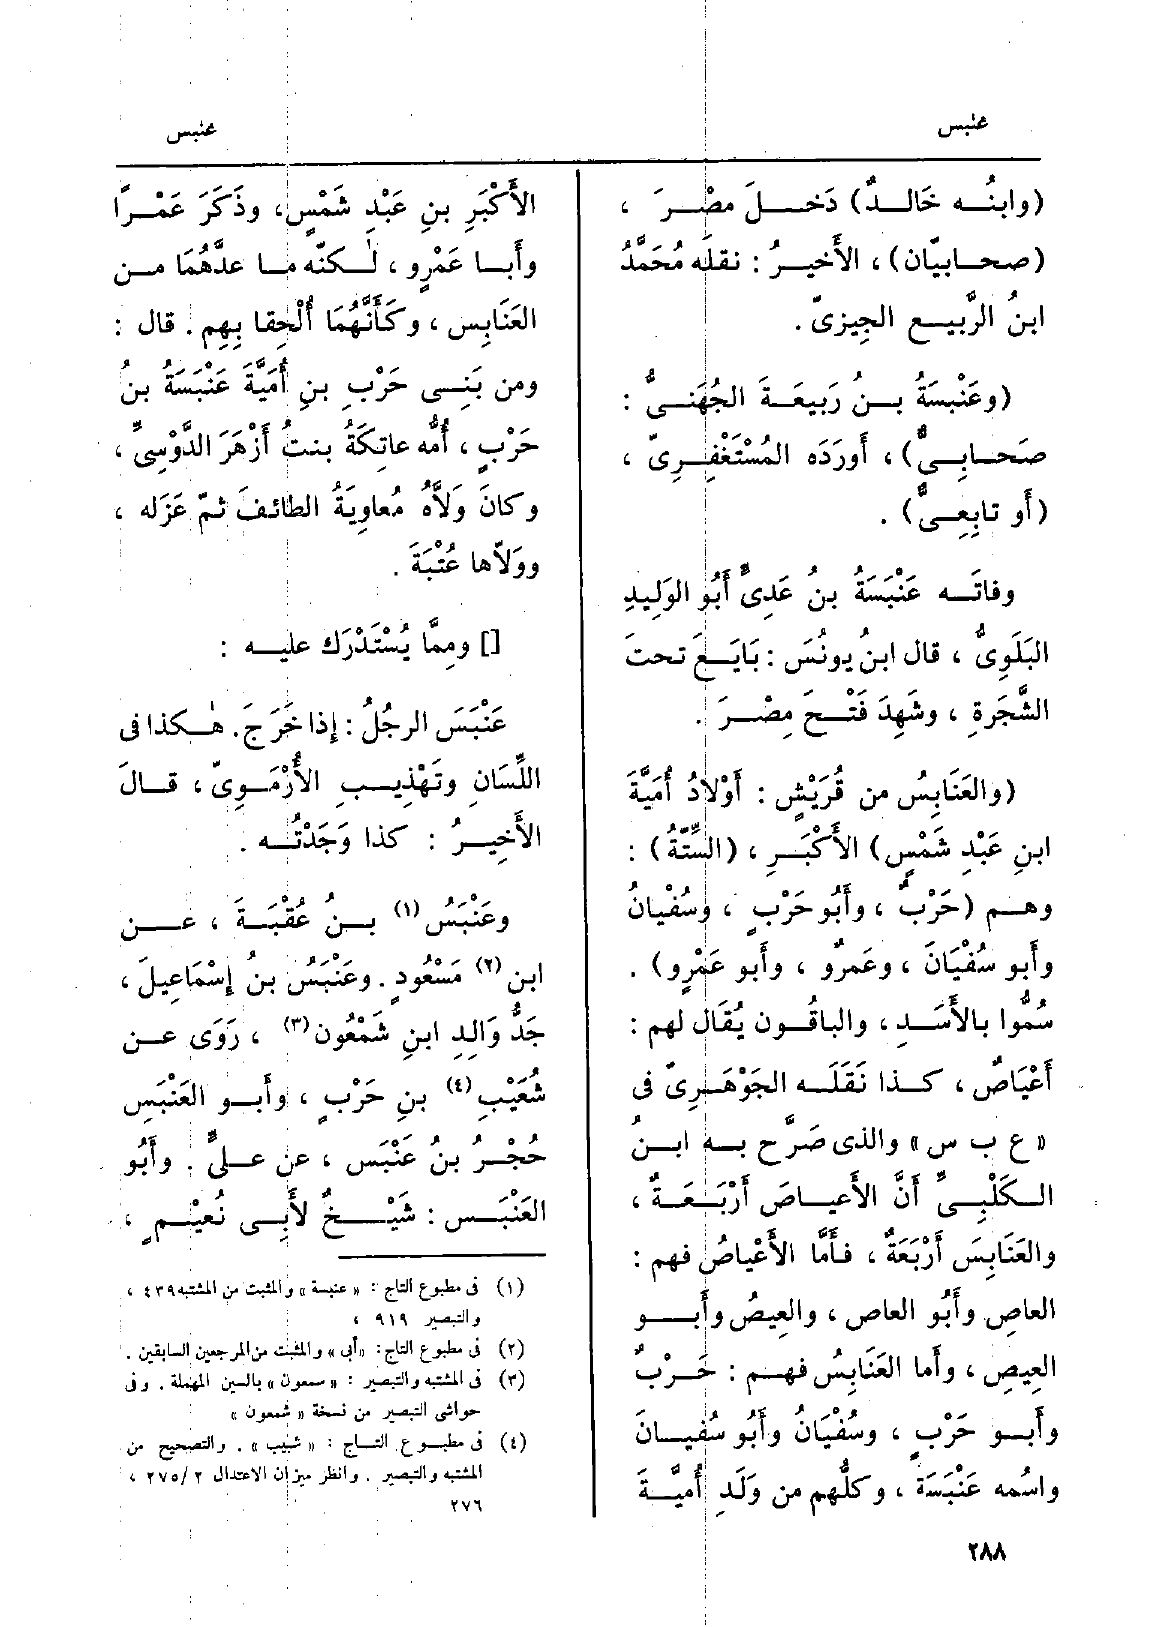 عنبس
عنبس
(وابنُه خَالدٌ) دَخل مصْرَ ،
(صحابيّان) ، الأَخيرُ : نقلَه مُحَمَّدُ
ابنُ الرَّبيع الجِيزىّ .
(وعَنْبسَةُ بنُ رَبيعَةَ الجُهَنىُّ :
صَحابِىٌّ) ، أَورَدَه المُسْتَغْفِرِىّ ،
(أَو تابِعِىٌّ) .
وفاتَه عَنْبَسَةُ بنُ عَدِىٍّ أَبُو الوَلِيدِ
البَلَوِىُّ ، قال ابنُ يونُسَ : بَايَعَ تحتَ
الشَّجَرةِ ، وشَهِدَ فَتْحَ مِصْرَ .
(والعَنَابِسُ من قُرَيْشٍ : أَوْلادُ أُمَيَّةَ
ابنِ عَبْدِ شَمْسٍ) الأَكْبَرِ ، (السِّتَّةُ) :
وهم (حَرْبٌ ، وأَبُو حَرْبٍ ، وسُفْيانُ
وأَبو سُفْيَانَ ، وعَمرٌو ، وأَبو عَمْرٍو) .
سُمُّوا بالأَسَدِ ، والباقُون يُقَال لهم :
أَعْيَاصٌ ، كذا نَقَلَه الجَوْهَرِىّ فى
« ع ب س » والذى صَرَّح به ابنُ
الكَلْبِىِّ أَنَّ الأَعياصَ أَرْبَعَةٌ ،
والعَنَابِسَ أَرْبَعَةٌ ، فأَمَّا الأَعْيَاصُ فهم :
العاصِ وأَبُو العاص ، والعِيصُ وأَبو
العِيصِ ، وأَما العَنَابِسُ فهم : حَرْبٌ
وأَبو حَرْبٍ ، وسُفْيَانُ وأَبُو سُفيانَ
واسُمه عَنْبَسَة ، وكلُّهم من وَلَدِ أُميَّةَ
٢٨٨
الأَكْبَرِ بنِ عَبْدِ شَمْسٍ، وذَكَرَ عَمْرًا
وأَبا عَمْرٍو ، لٰكنّه ما عدَّهُمَا من
العَنَابِس ، وكَأَنَّهُمَا أُلْحِقا بِهِم . قال :
ومن بَنِى حَرْبِ بنِ أُمَيَّةَ عَنْبَسَةُ بنُ
حَرْبٍ ، أُمُّه عاتِكَةُ بنتُ أَزْهَرَ الدَّوْسِىِّ ،
وكانَ وَلاَّه مُعاوِيَةُ الطائفَ ثمّ عَزَله ،
وولاّها عُتْبَةَ .
[] ومِمَّا يُسْتَدْرَك عليه :
عَنْبَسَ الرجُلُ : إذا خَرَجَ. هٰكذا فى
اللِّسَانِ وتَهْذِيبِ الأُرْمَوِىّ ، قالَ
الأَخِيرُ : كذا وَجَدْتُه .
وعَنْبَسُ (١) بنُ عُقْبَةَ ، عن
ابن (٢) مَسْعُودٍ . وعَنْبَسُ بنُ إِسْمَاعِيلَ ،
جَدُّ وَالِدِ ابنِ شَمْعُون (٣) ، رَوَى عن
شُعَيْبِ (٤) بنِ حَرْبٍ ، وأَبو العَنْبَسِ
حُجْرُ بنُ عَنْبَس ، عن علىٍّ . وأَبُو
العَنْبَس : شَيْخٌ لأَبِى نُعيْمٍ ،
(١) فى مطبوع التاج : « عنبسة » والمثبت من المشتبه ٤٣٩ ،
والتبصير ٩١٩ ،
(٢) فى مطبوع التاج : «أبى» والمثبت من المرجعين السابقين .
(٣) فى المشتبه والتبصير : « سمعون » بالسين المهملة . وفى
حواشى التبصير من نسخة « شمعون »
(٤) فى مطبوع التاج : « شبيب » . والتصحيح من
المشتبه والتبصير . وانظر ميزان الاعتدال ٢ /٢٧٥ ،
٢٧٦